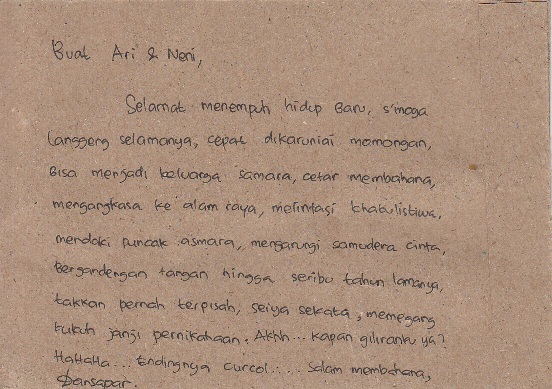 Buat Ari & Neni,
Selamat menempuh hidup Baru, s'moga
langgeng selamanya, cepat dikaruniai momongan,
Bisa menjadi keluarga samara, cetar membahana,
mengangkasa ke alam raya, melintasi khatulistiwa,
mendaki puncak asmara, mengarungi samudera cinta,
Bergandengan tangan hingga seribu tahun lamanya,
takkan pernah terpisah, seiya sekata, memegang
tukuh janji pernikahaan. Akhh... kapan giliranku ya?
HaHaHa... Endingnya curcol.... salam membahana,
Dansapar.